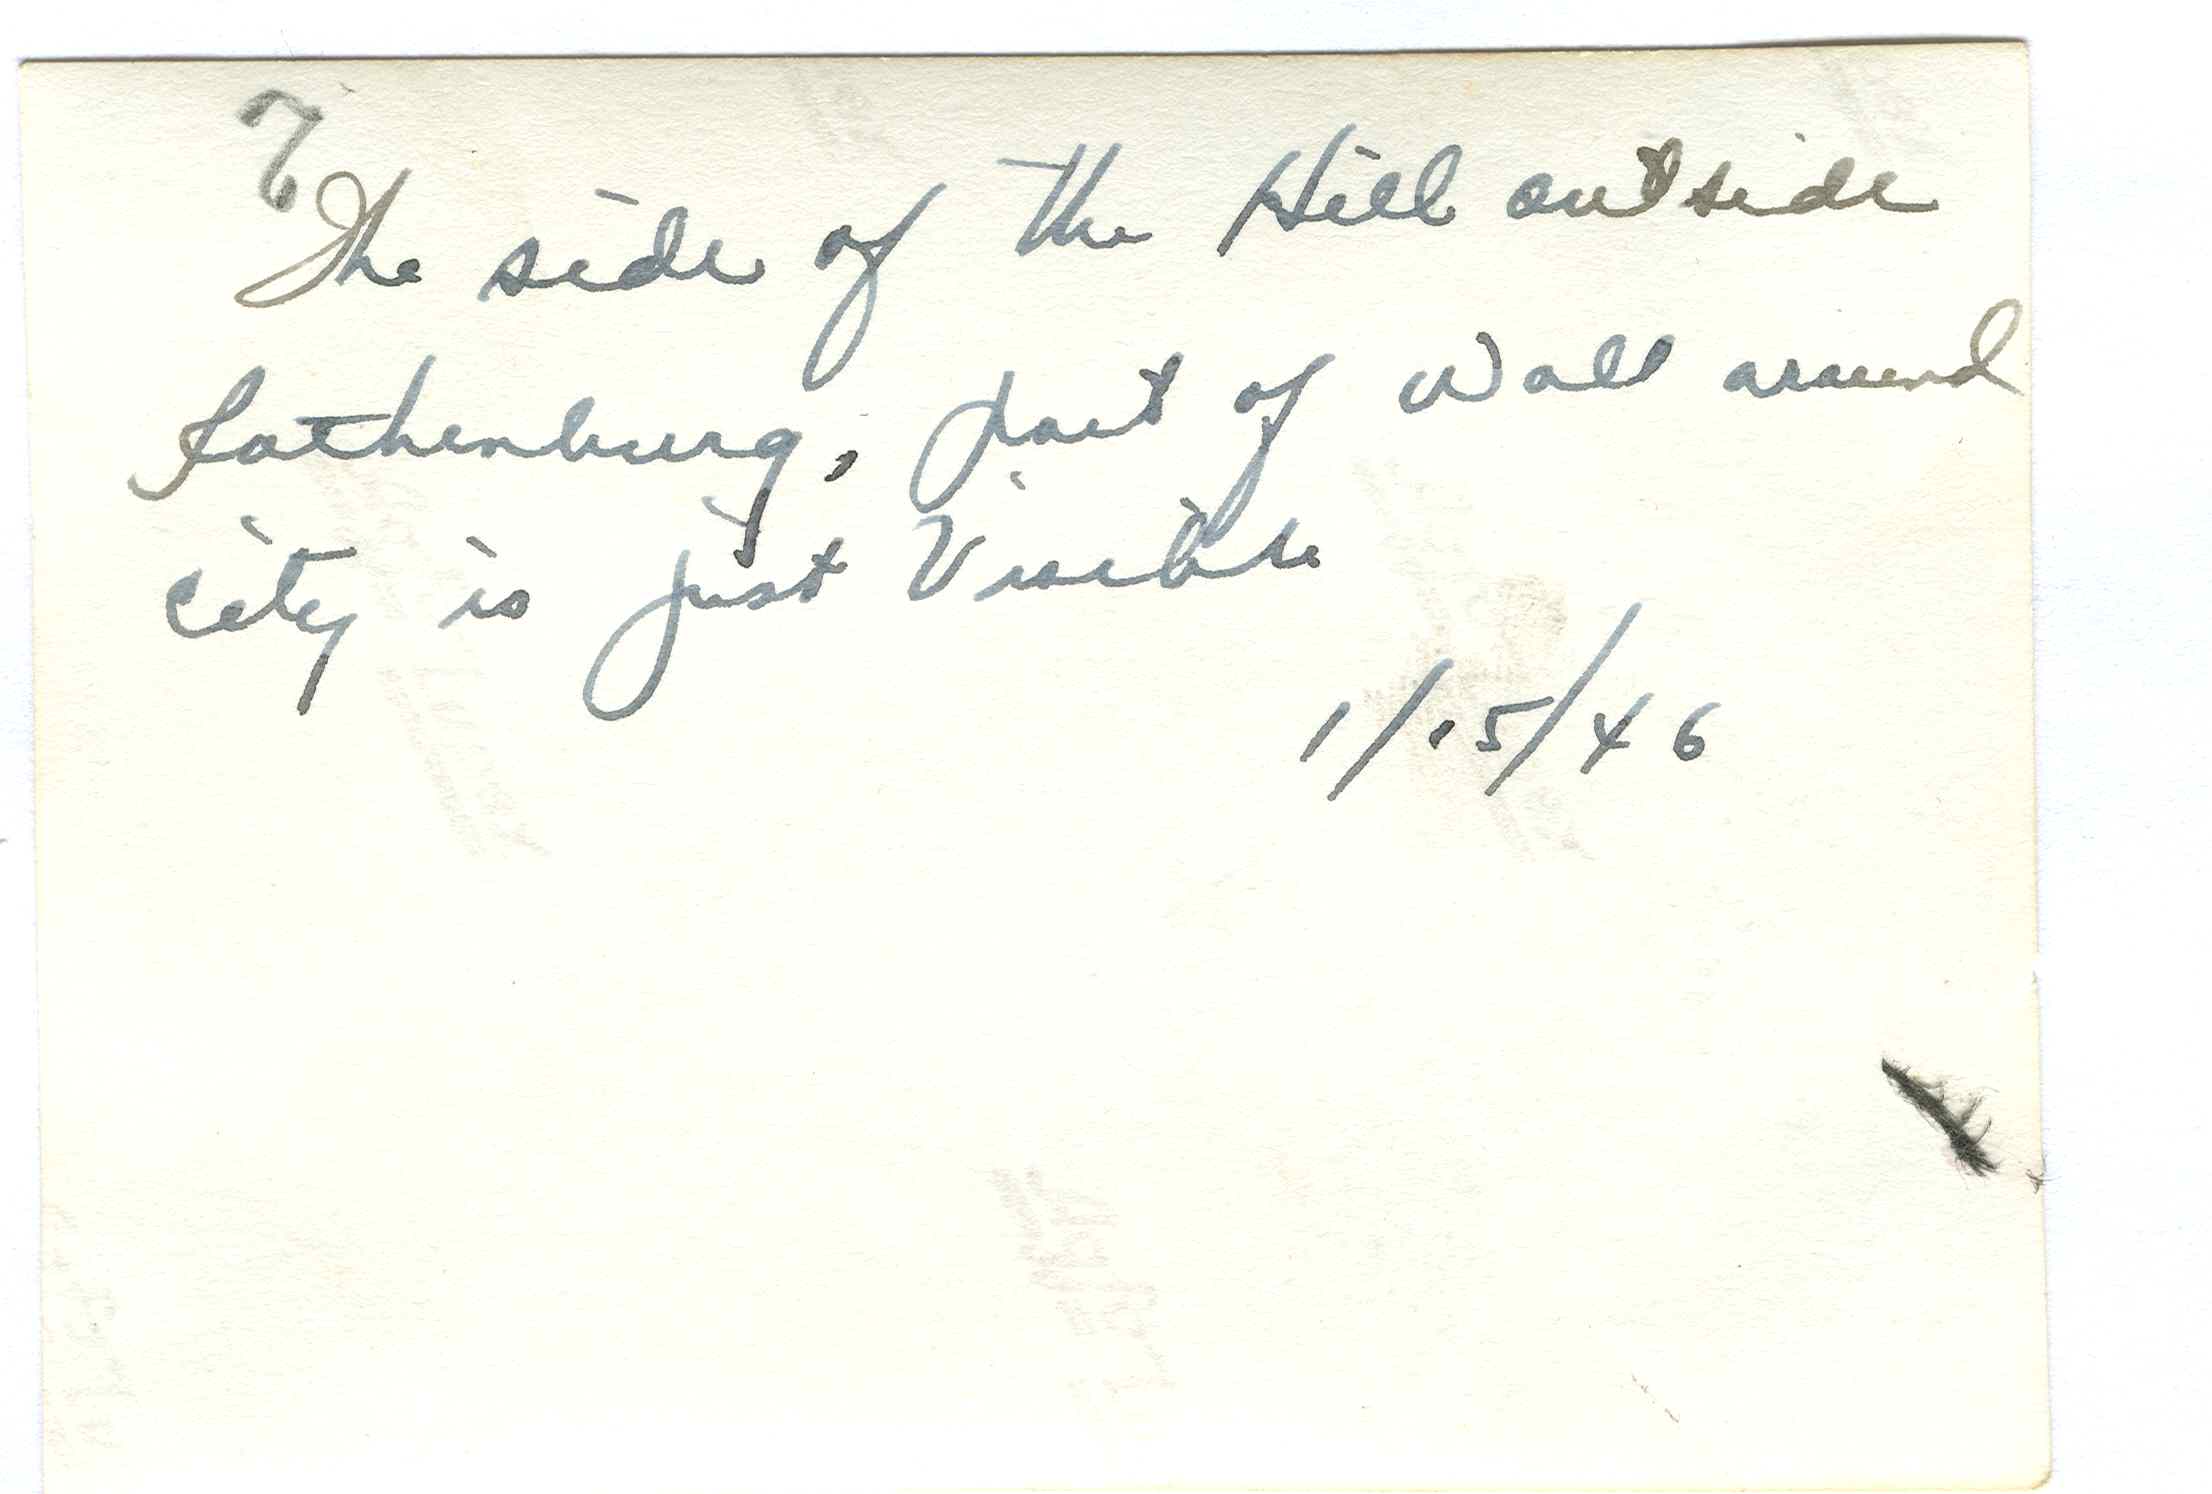 7
The side of the Hill outside
Rothenburg, part of Wall around
city is just Visible
1/15/46